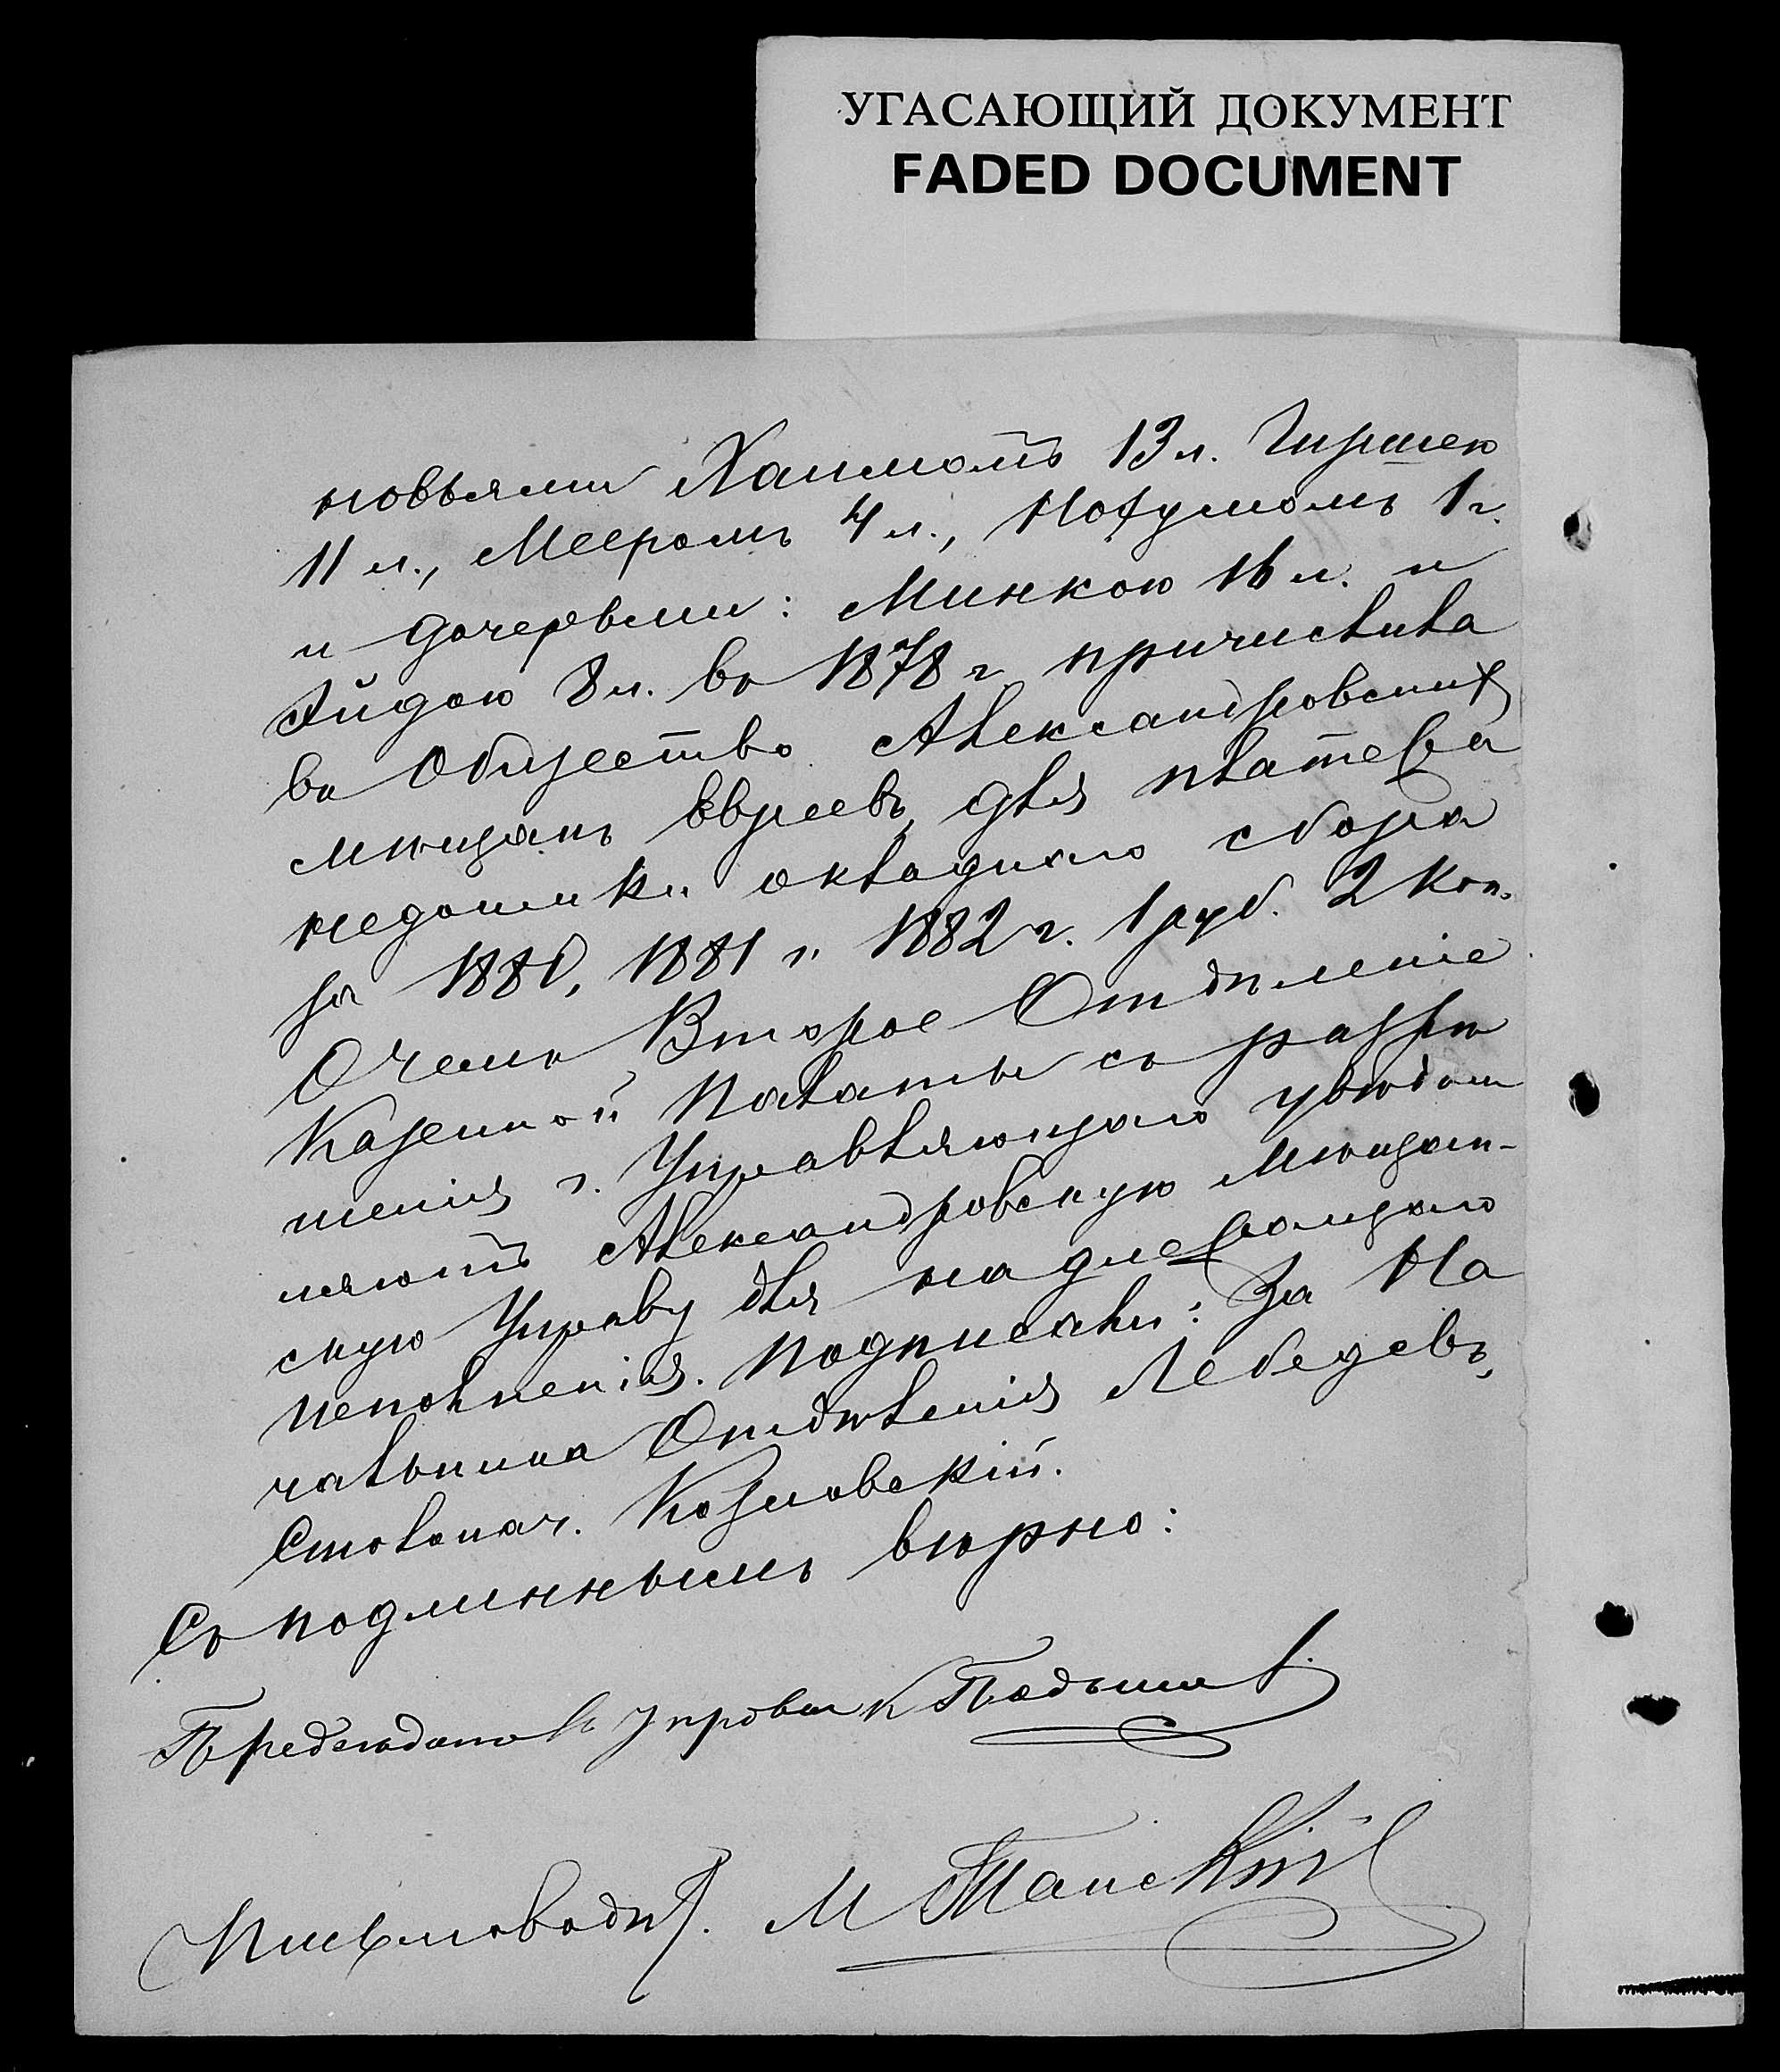 УГАСАЮЩИЙ ДОКУМЕНТ
FADED DOCUMENT
новьями Хаимомъ 13 л. Гиршею
11 л., Мееромъ 4 л., Нохумомъ 1 г.
и дочерьми: Минкою 16 л. и
Айдою 8 л. въ 1878 г причислена
въ общество Александровских
мѣщанъ евреевъ, для платежа
недоимки окладнаго сбора
за 1880, 1881 и 1882 г. 1 руб. 2 коп.
О чемъ Второе Отдѣленіе
Казенной Палаты съ разрѣ
шенія г. Управляющаго увѣдом
ляютъ Александровскую Мѣщан-
скую Управу для надлежащаго
исполненія. Подписали: За На
чальника Отдѣленія Лебедевъ,
Столонач. Козловскій.
Съ подлиннымъ вѣрно:
Предсѣдатель управы
Письмоводит. М